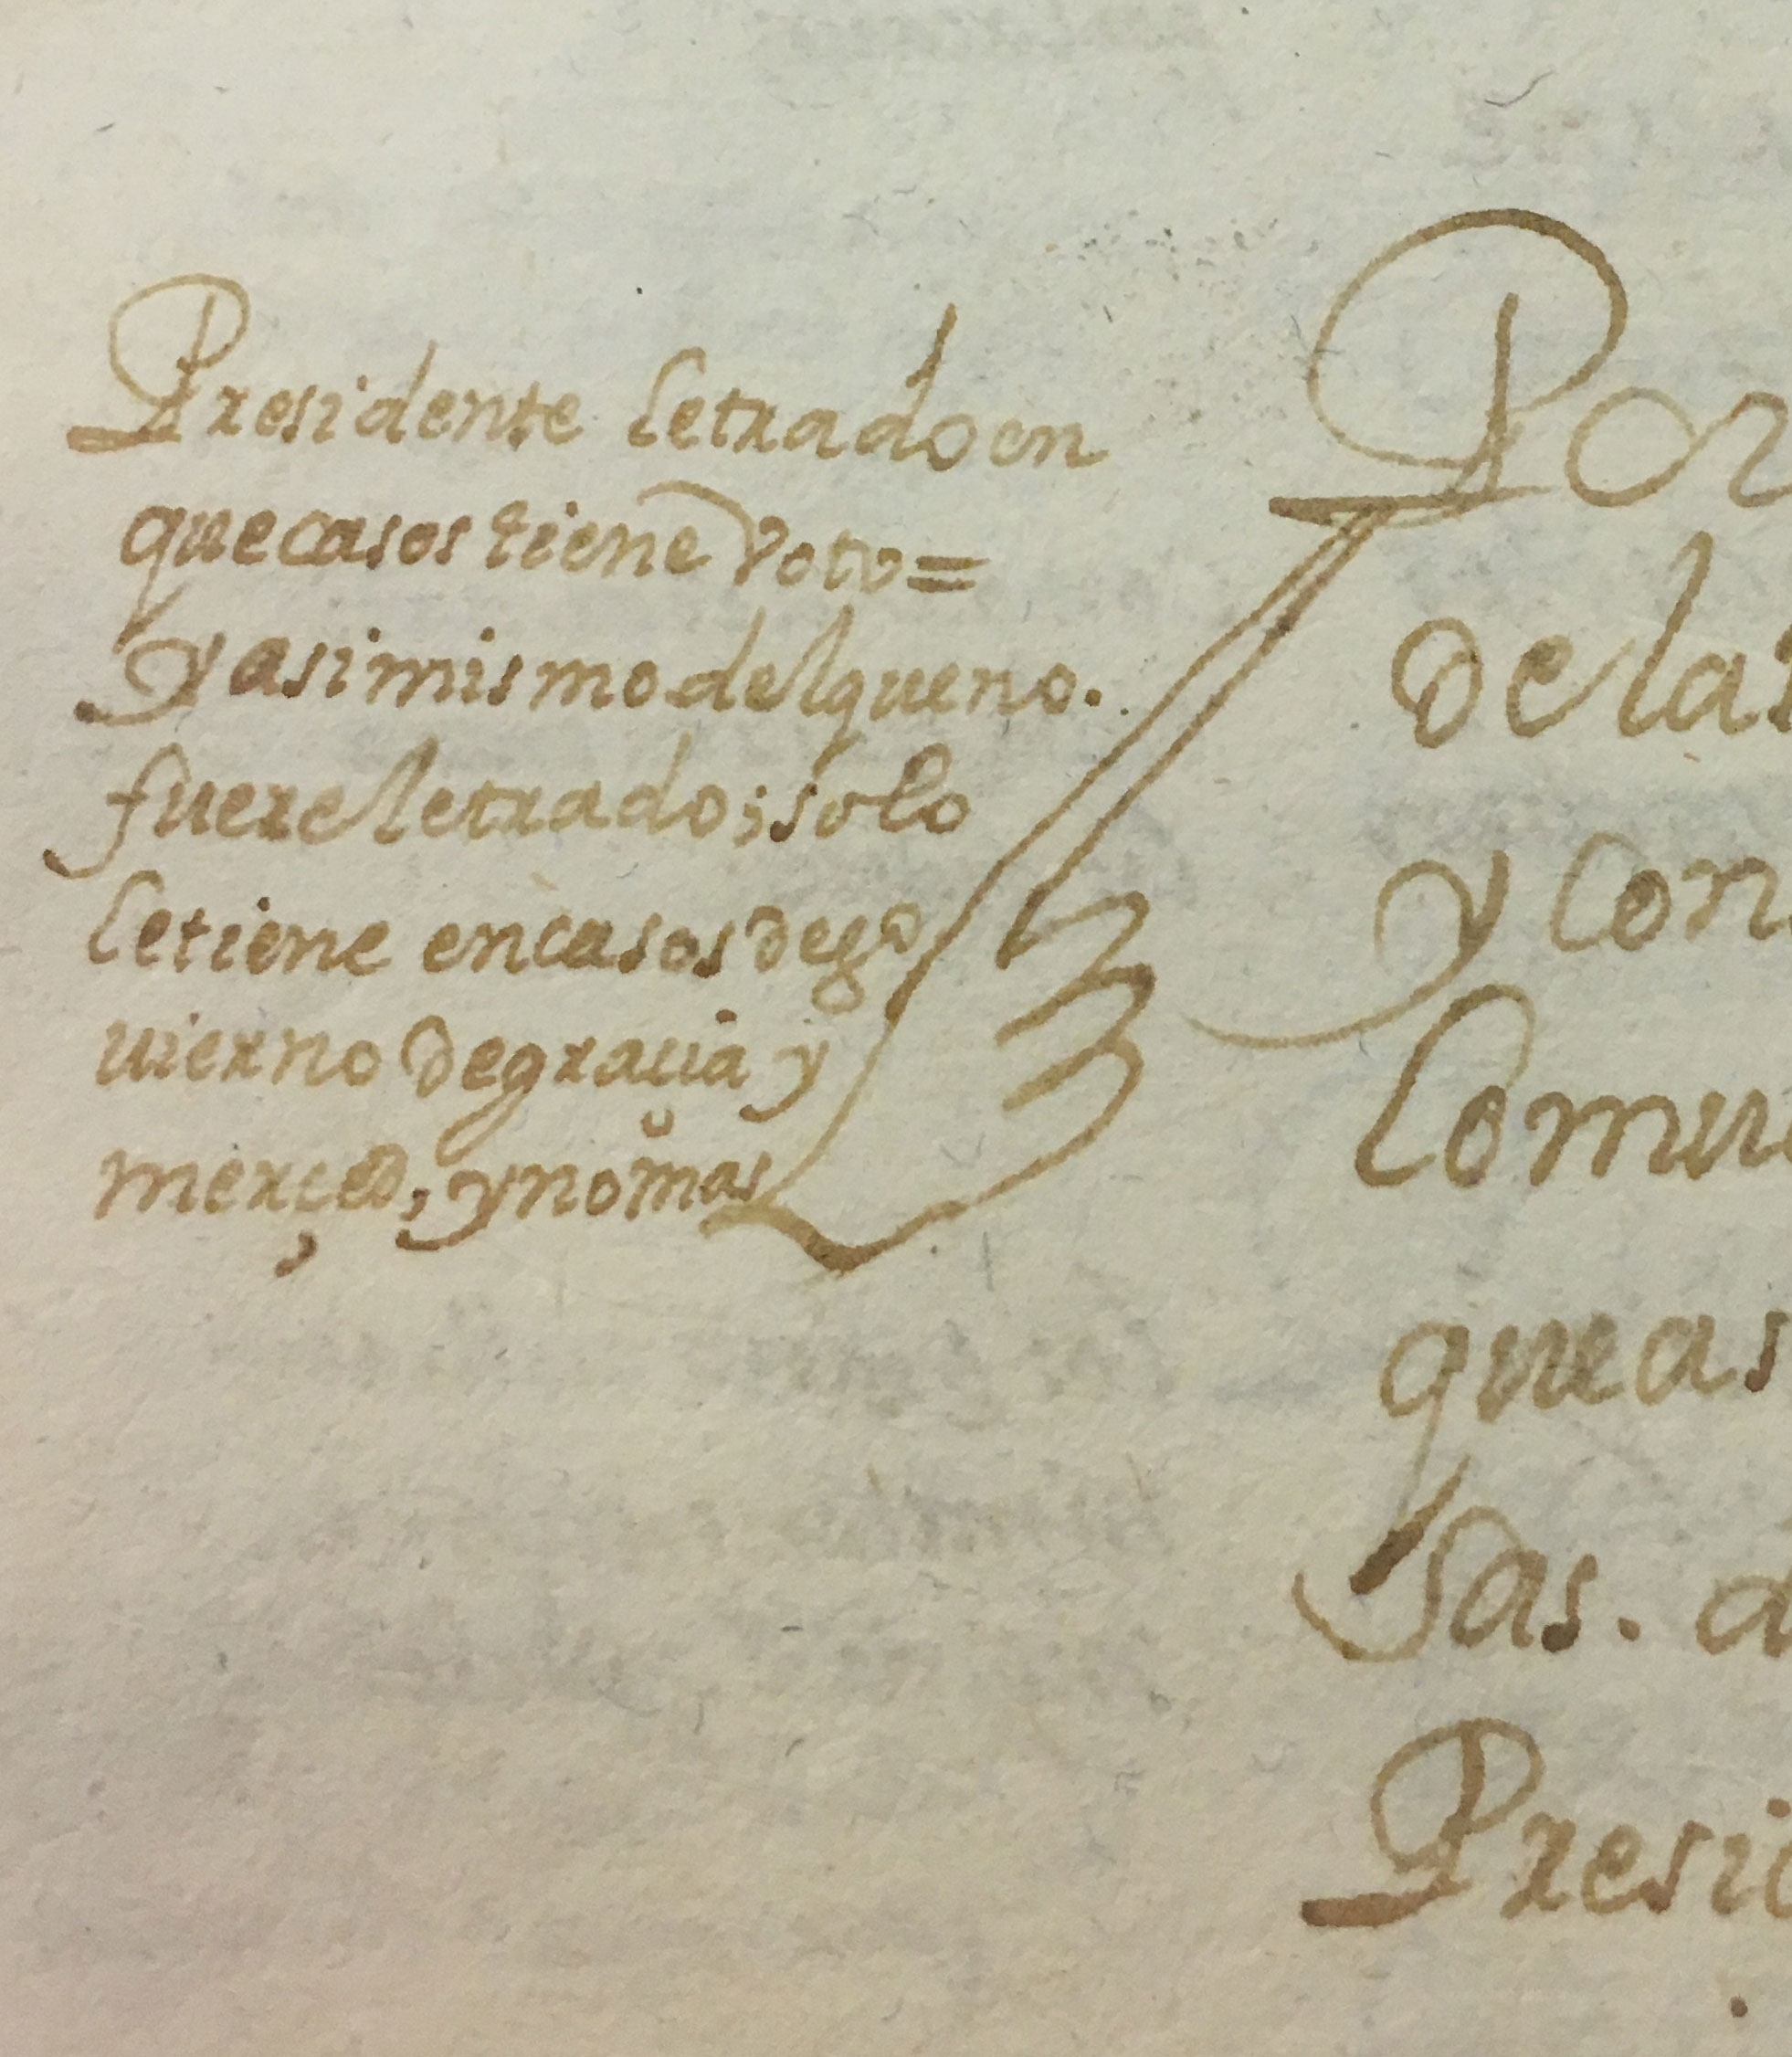 Presidente letrado en
que casos tiene voto =
y asimismo del que no.
fuere letrado; solo
le tiene en casos de go
uierno de gracia y
merçed, y no mas
Por
de las
y con
Comu
que as
sas. a
Presi